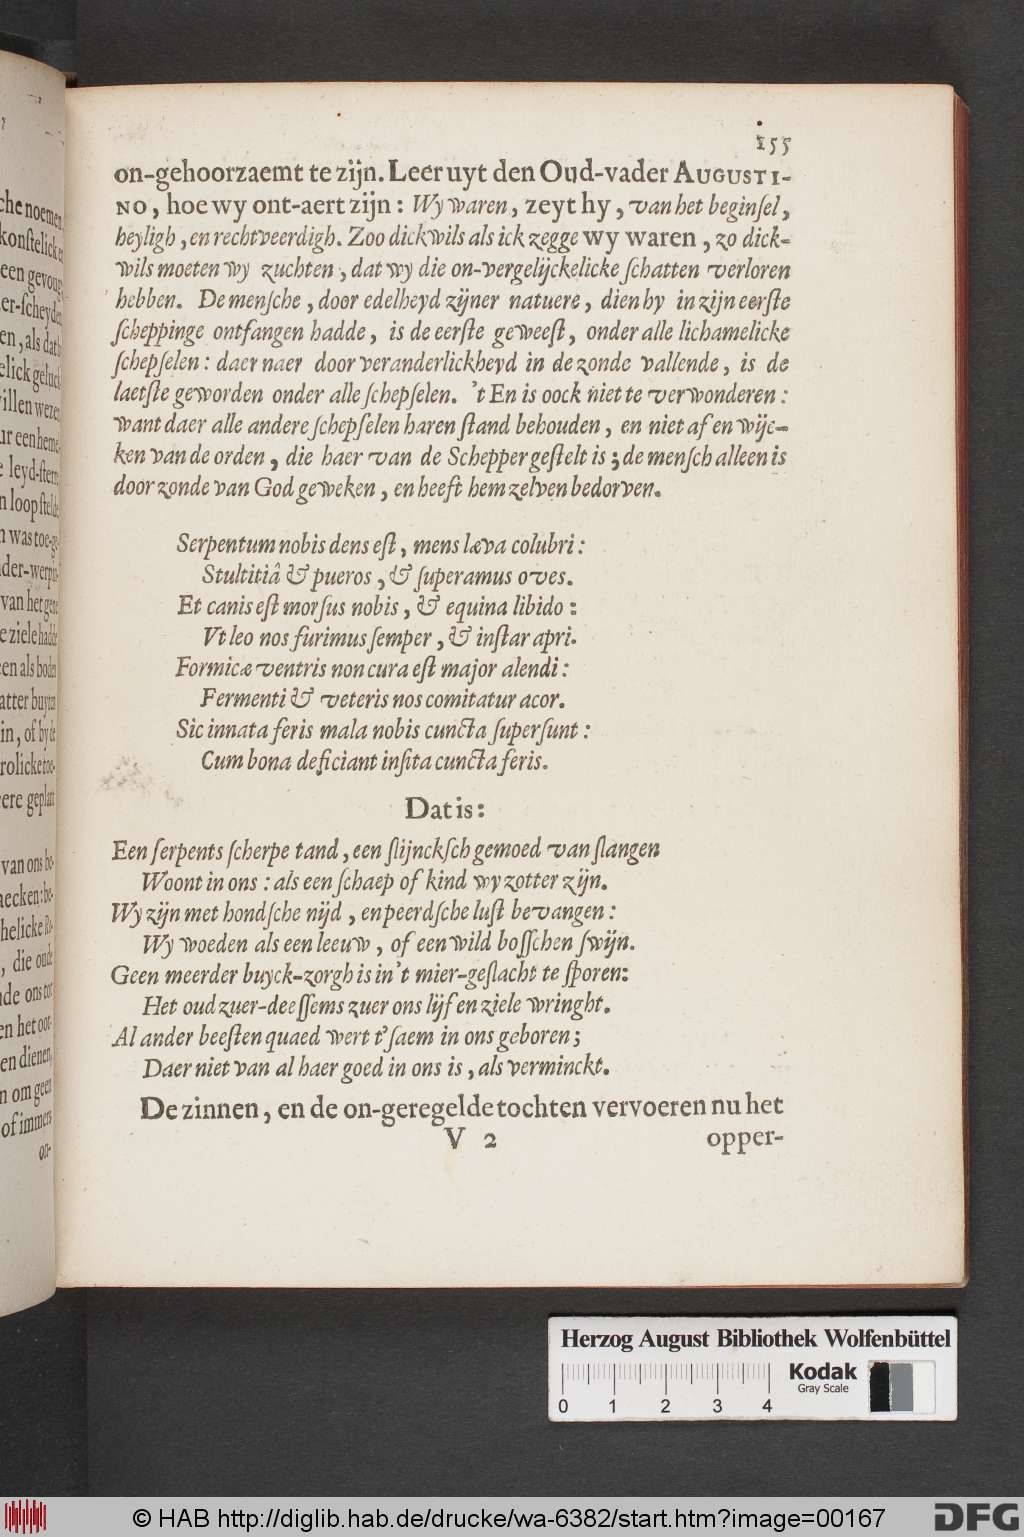 155
on-gehoorzaemt te zijn. Leer uyt den Oud-vader AUGUSTI-
NO, hoe wy ont-aert zijn: Wy waren, zeyt hy, van het beginsel,
heyligh, en rechtveerdigh. Zoo dickwils als ick zegge wy waren, zo dick-
wils moeten wy zuchten, dat wy die on-vergelijckelicke schatten verloren
hebben. De mensche, door edelheyd zijner natuere, dien hy in zijn eerste
scheppinge ontfangen hadde, is de eerste geweest, onder alle lichamelicke
schepselen: daer naer door veranderlickheyd in de zonde vallende, is de
laetste geworden onder alle schepselen. 't En is oock niet te verwonderen:
want daer alle andere schepselen haren stand behouden, en niet af en wijc-
ken van de orden, die haer van de Schepper gestelt is; de mensch alleen is
door zonde van God geweken, en heeft hem zelven bedorven.
Serpentum nobis dens est, mens læva colubri:
Stultitiâ & pueros, & superamus oves.
Et canis est morsus nobis, & equina libido:
Vt leo nos furimus semper, & instar apri.
Formicæ ventris non cura est major alendi:
Fermenti & veteris nos comitatur acor.
Sic innata feris mala nobis cuncta supersunt:
Cum bona deficiant insita cuncta feris.
Dat is:
Een serpents scherpe tand, een slijncksch gemoed van slangen
Woont in ons: als een schaep of kind wy zotter zijn.
Wy zijn met hondsche nijd, en peerdsche lust bevangen:
Wy woeden als een leeuw, of een wild bosschen swijn.
Geen meerder buyck-zorgh is in't mier-geslacht te sporen:
Het oud zuer-deessems zuer ons lijf en ziele wringht.
Al ander beesten quaed wert t'saem in ons geboren;
Daer niet van al haer goed in ons is, als verminckt.
De zinnen, en de on-geregelde tochten vervoeren nu het
V 2 opper-
che noemen,
konstelick
een gevoug
er-scheyden
en, als dat
elick geluck
willen wezen
ur een heme
e leyd-sterre
n loop stelde
n was toe-ge
der-werpin
van het gene
e ziele hadde
een als boden
atter buyten
in, of by de
rolicke toe-
ere geplant
van ons be-
aecken: be-
helicke
, die oude
de ons tot
en het oor-
en dienen,
n om geen
of immers
on-
Herzog August Bibliothek Wolfenbüttel
Kodak
Gray Scale
0 1 2 3 4
© HAB http://diglib.hab.de/drucke/wa-6382/start.htm?image=00167
DFG